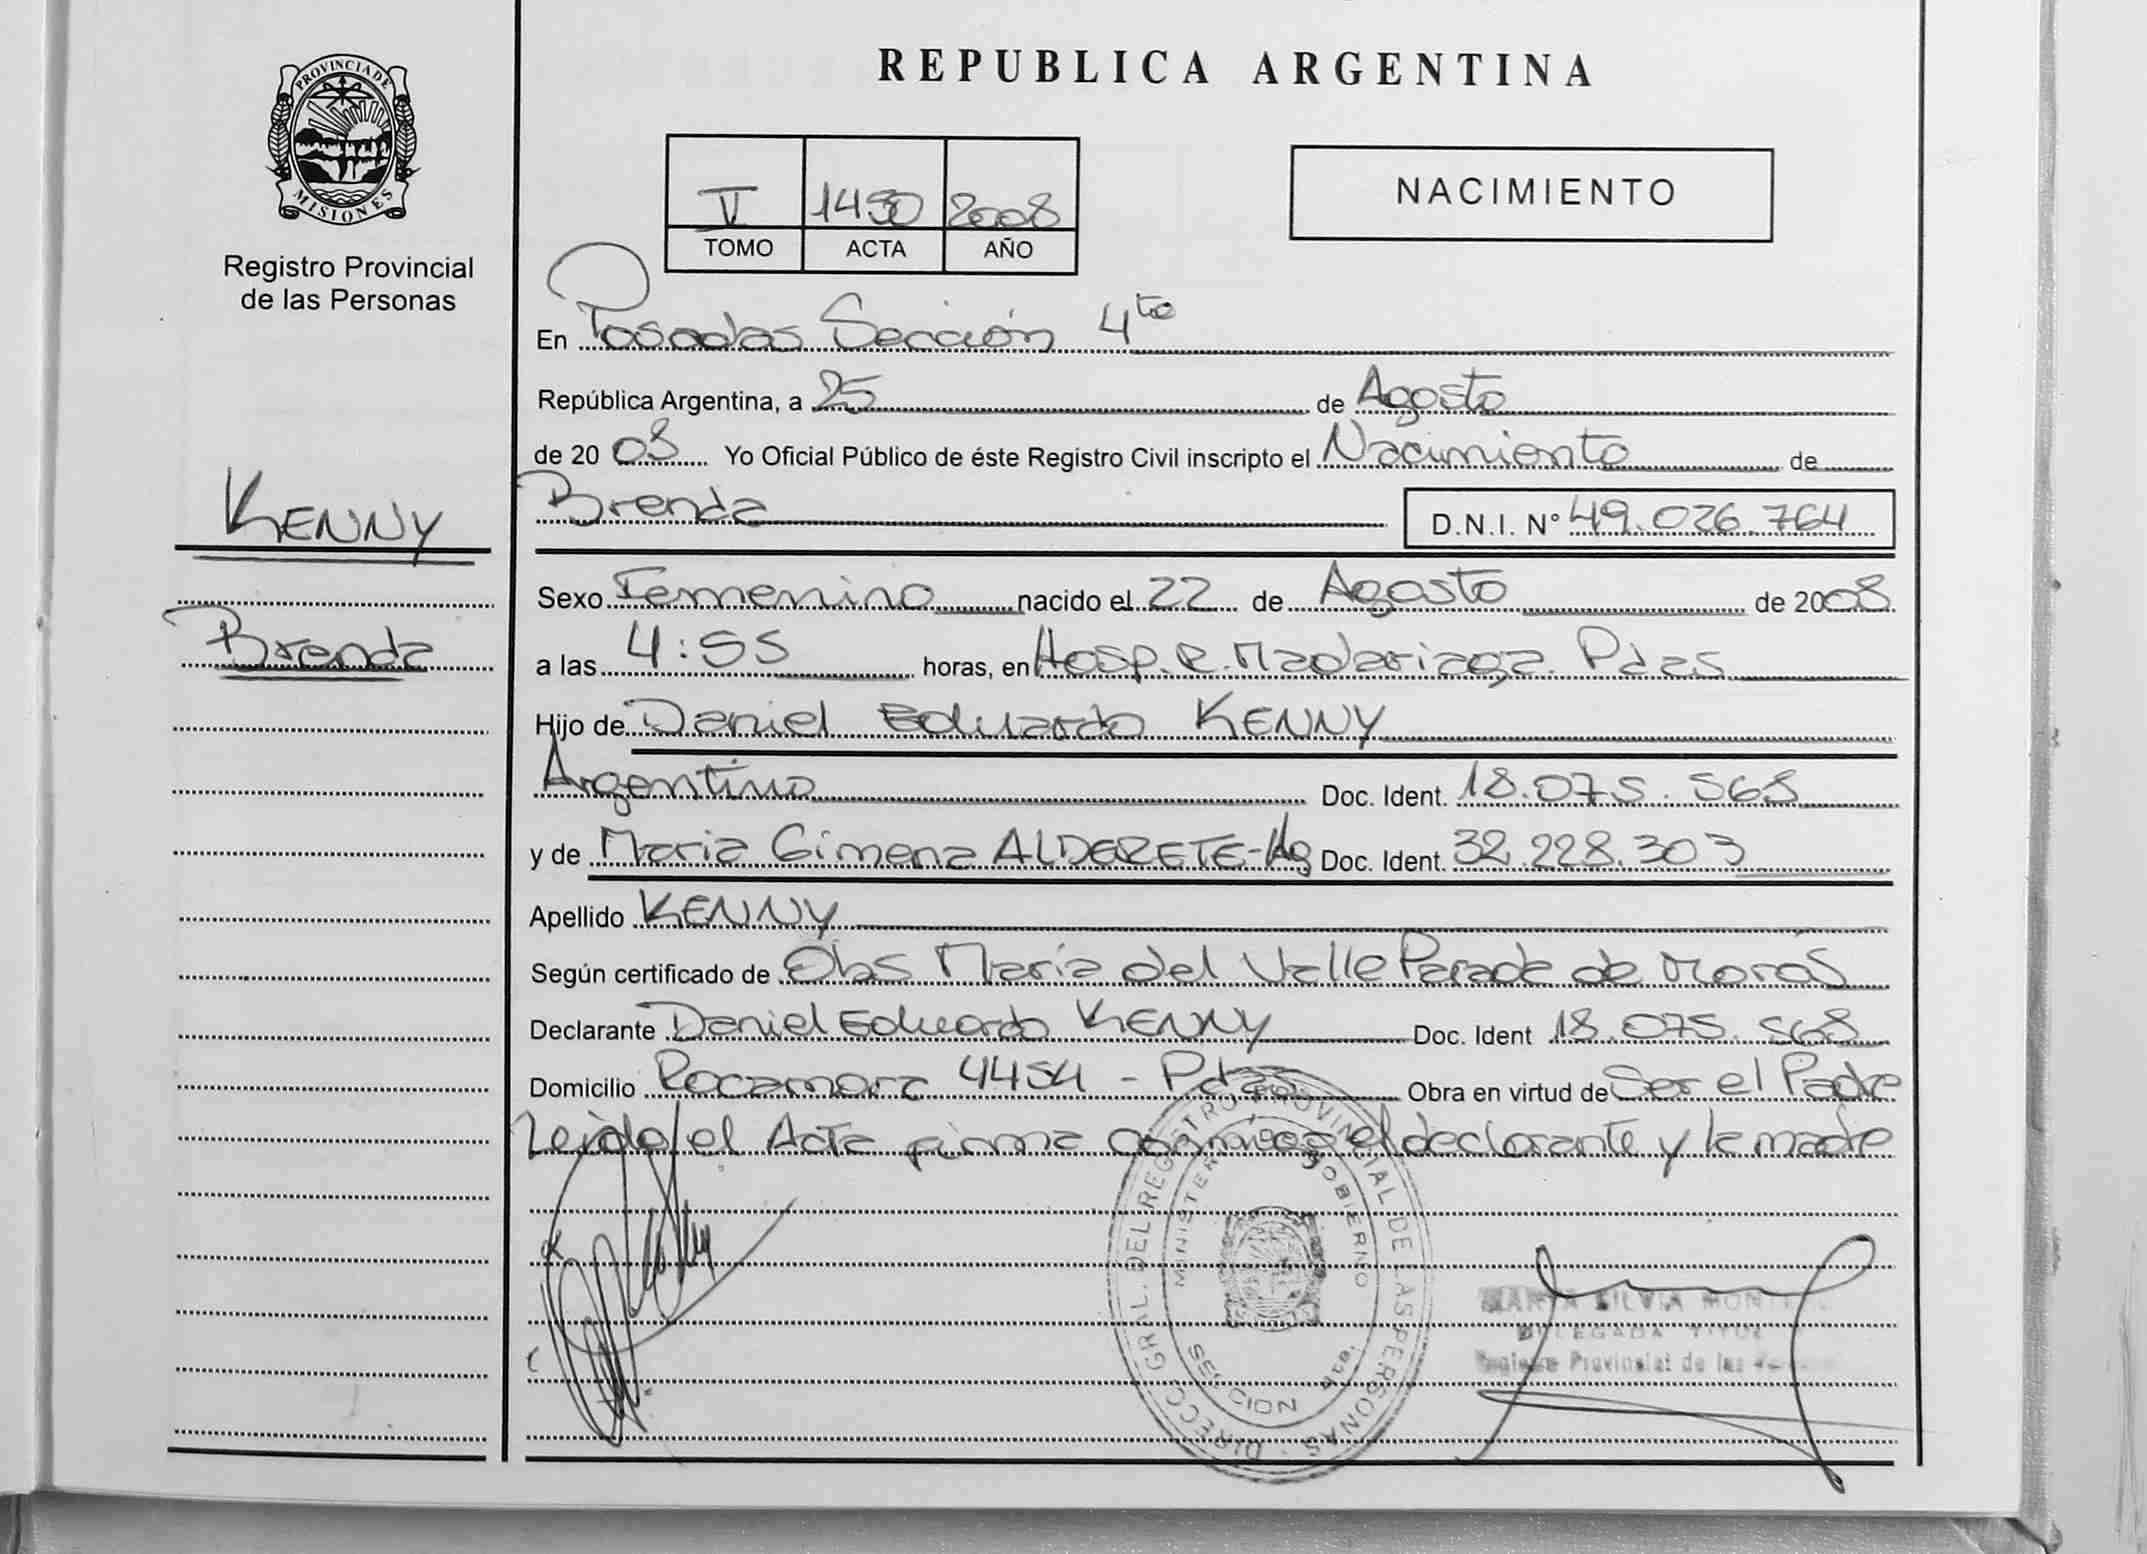 REPUBLICA ARGENTINA
PROVINCIA DE
MISIONES
Registro Provincial
de las Personas
V 1450 2008
TOMO ACTA AÑO
NACIMIENTO
En Posadas Sección 4to
República Argentina, a 25 de Agosto
de 2008 Yo Oficial Público de éste Registro Civil inscripto el Nacimiento de
Brenda D.N.I. N° 49.026.764
KENNY
Brenda
Sexo Femenino nacido el 22 de Agosto de 2008
a las 4:55 horas, en Hosp. R. Madariaga. Pdas
Hijo de Daniel Eduardo KENNY
Argentino Doc. Ident. 18.075.568
y de Maria Gimena ALDERETE-Ag Doc. Ident. 32.228.303
Apellido KENNY
Según certificado de Obs Maria del Valle Parada de Morás
Declarante Daniel Eduardo KENNY Doc. Ident 18.075.568
Domicilio Rocamora 4454 - Pdas Obra en virtud de Ser el Padre
Leido el Acta firma conmigo el declarante y la madre
DIRECC. GRAL. DEL REGISTRO PROVINCIAL DE LAS PERSONAS
MINISTERIO GOBIERNO
SECCION 4ta.
SILVIA
DELEGADA
Registro Provincial de las